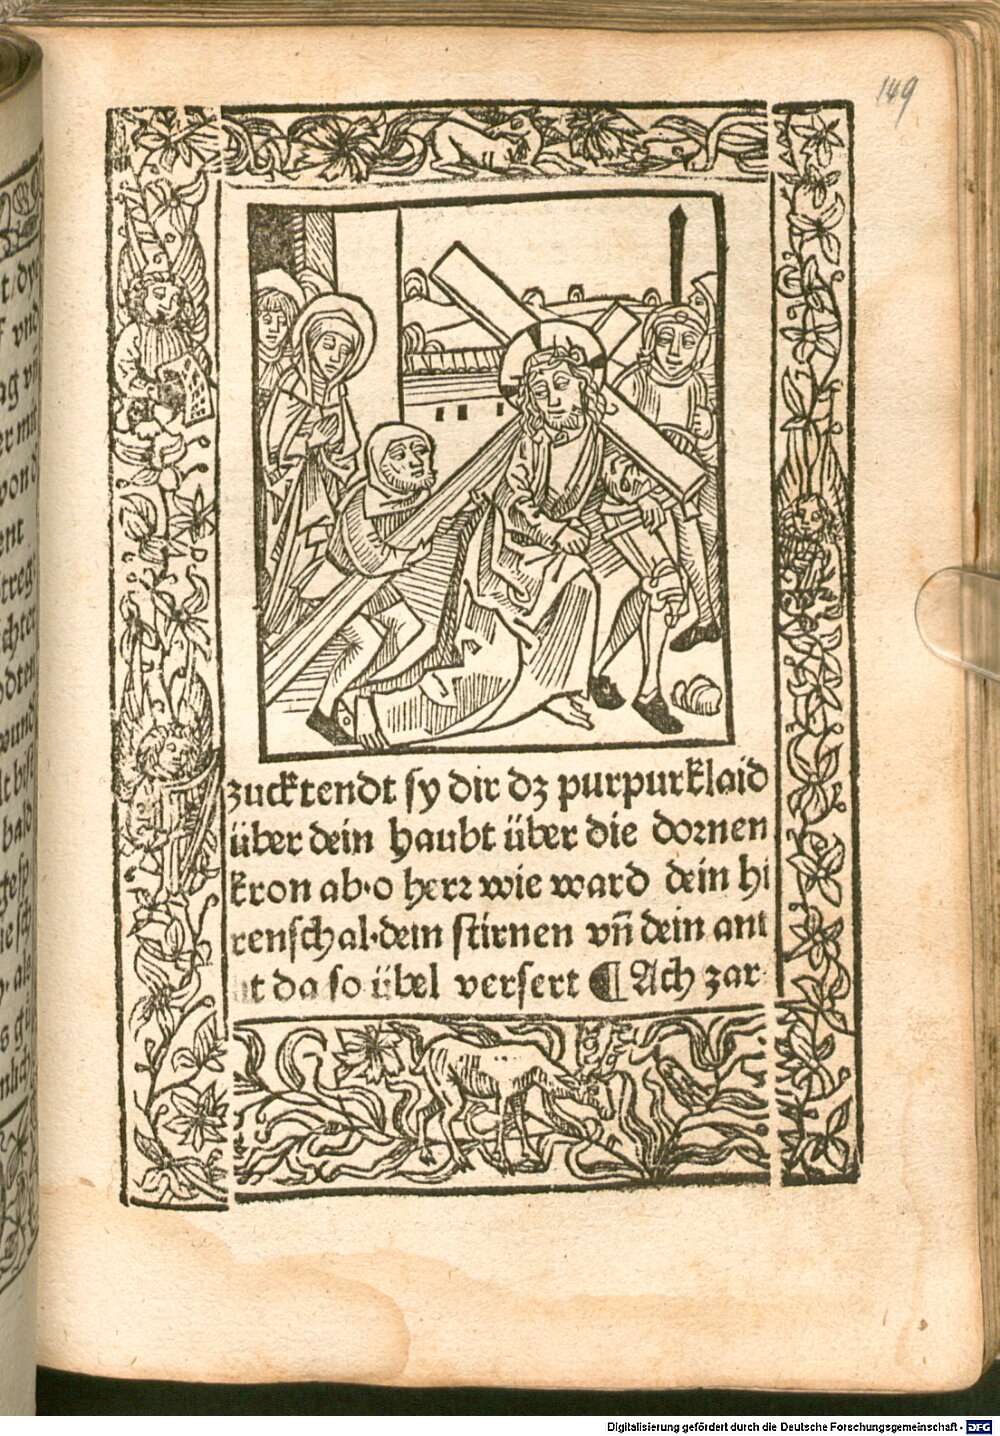 149
zucktendt sy dir dz purpurklaid
über dein haubt über die dornen
kron ab·o herr wie ward dein hi
renschal·dein stirnen vn̄ dein ant
da so übel versert ¶ Ach zar
Digitalisierung gefördert durch die Deutsche Forschungsgemeinschaft - DFG